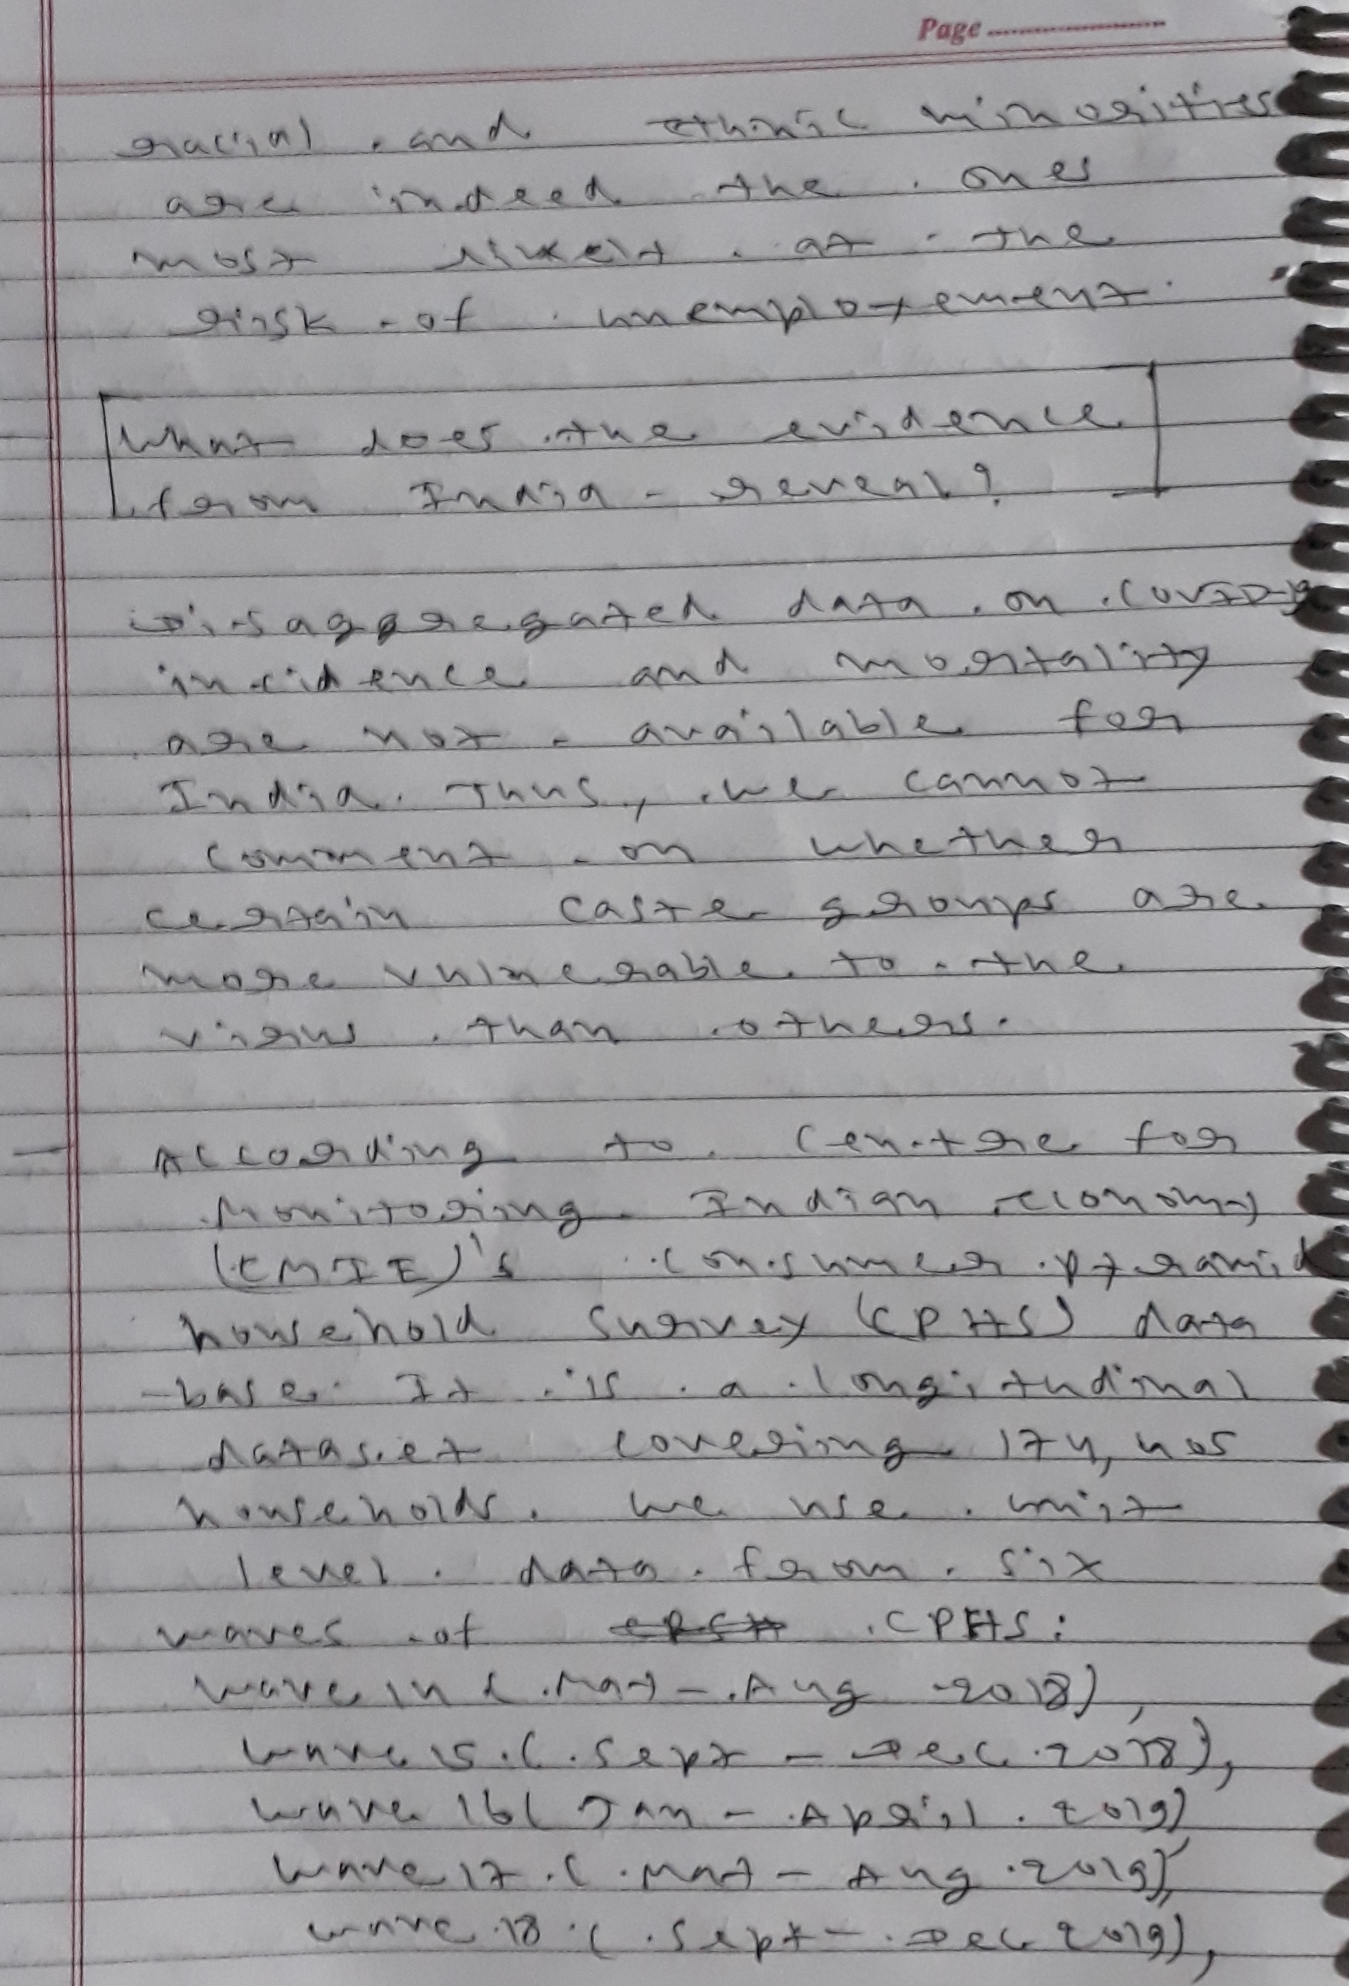 Page
racial and ethnic minorities
are indeed the ones
most likely at the
risk of unemployement.
What does the evidence
from India reveal?
Disaggregated data on COVID-19
incidence and mortality
are not available for
India. Thus, we cannot
comment on whether
certain caste groups are
more vulnerable to the
virus than others.
According to Centre for
Monitoring Indian economy
(CMIE)'s consumer pyramid
household survey (CPHS) data
-base. It is a longitudinal
dataset covering 174,405
households. We use unit
level data from six
waves of CPHS:
wave 14 (May - Aug 2018),
wave 15 (Sept - Dec 2018),
wave 16 (Jan - April 2019)
wave 17 (May - Aug 2019),
wave 18 (Sept - Dec 2019),